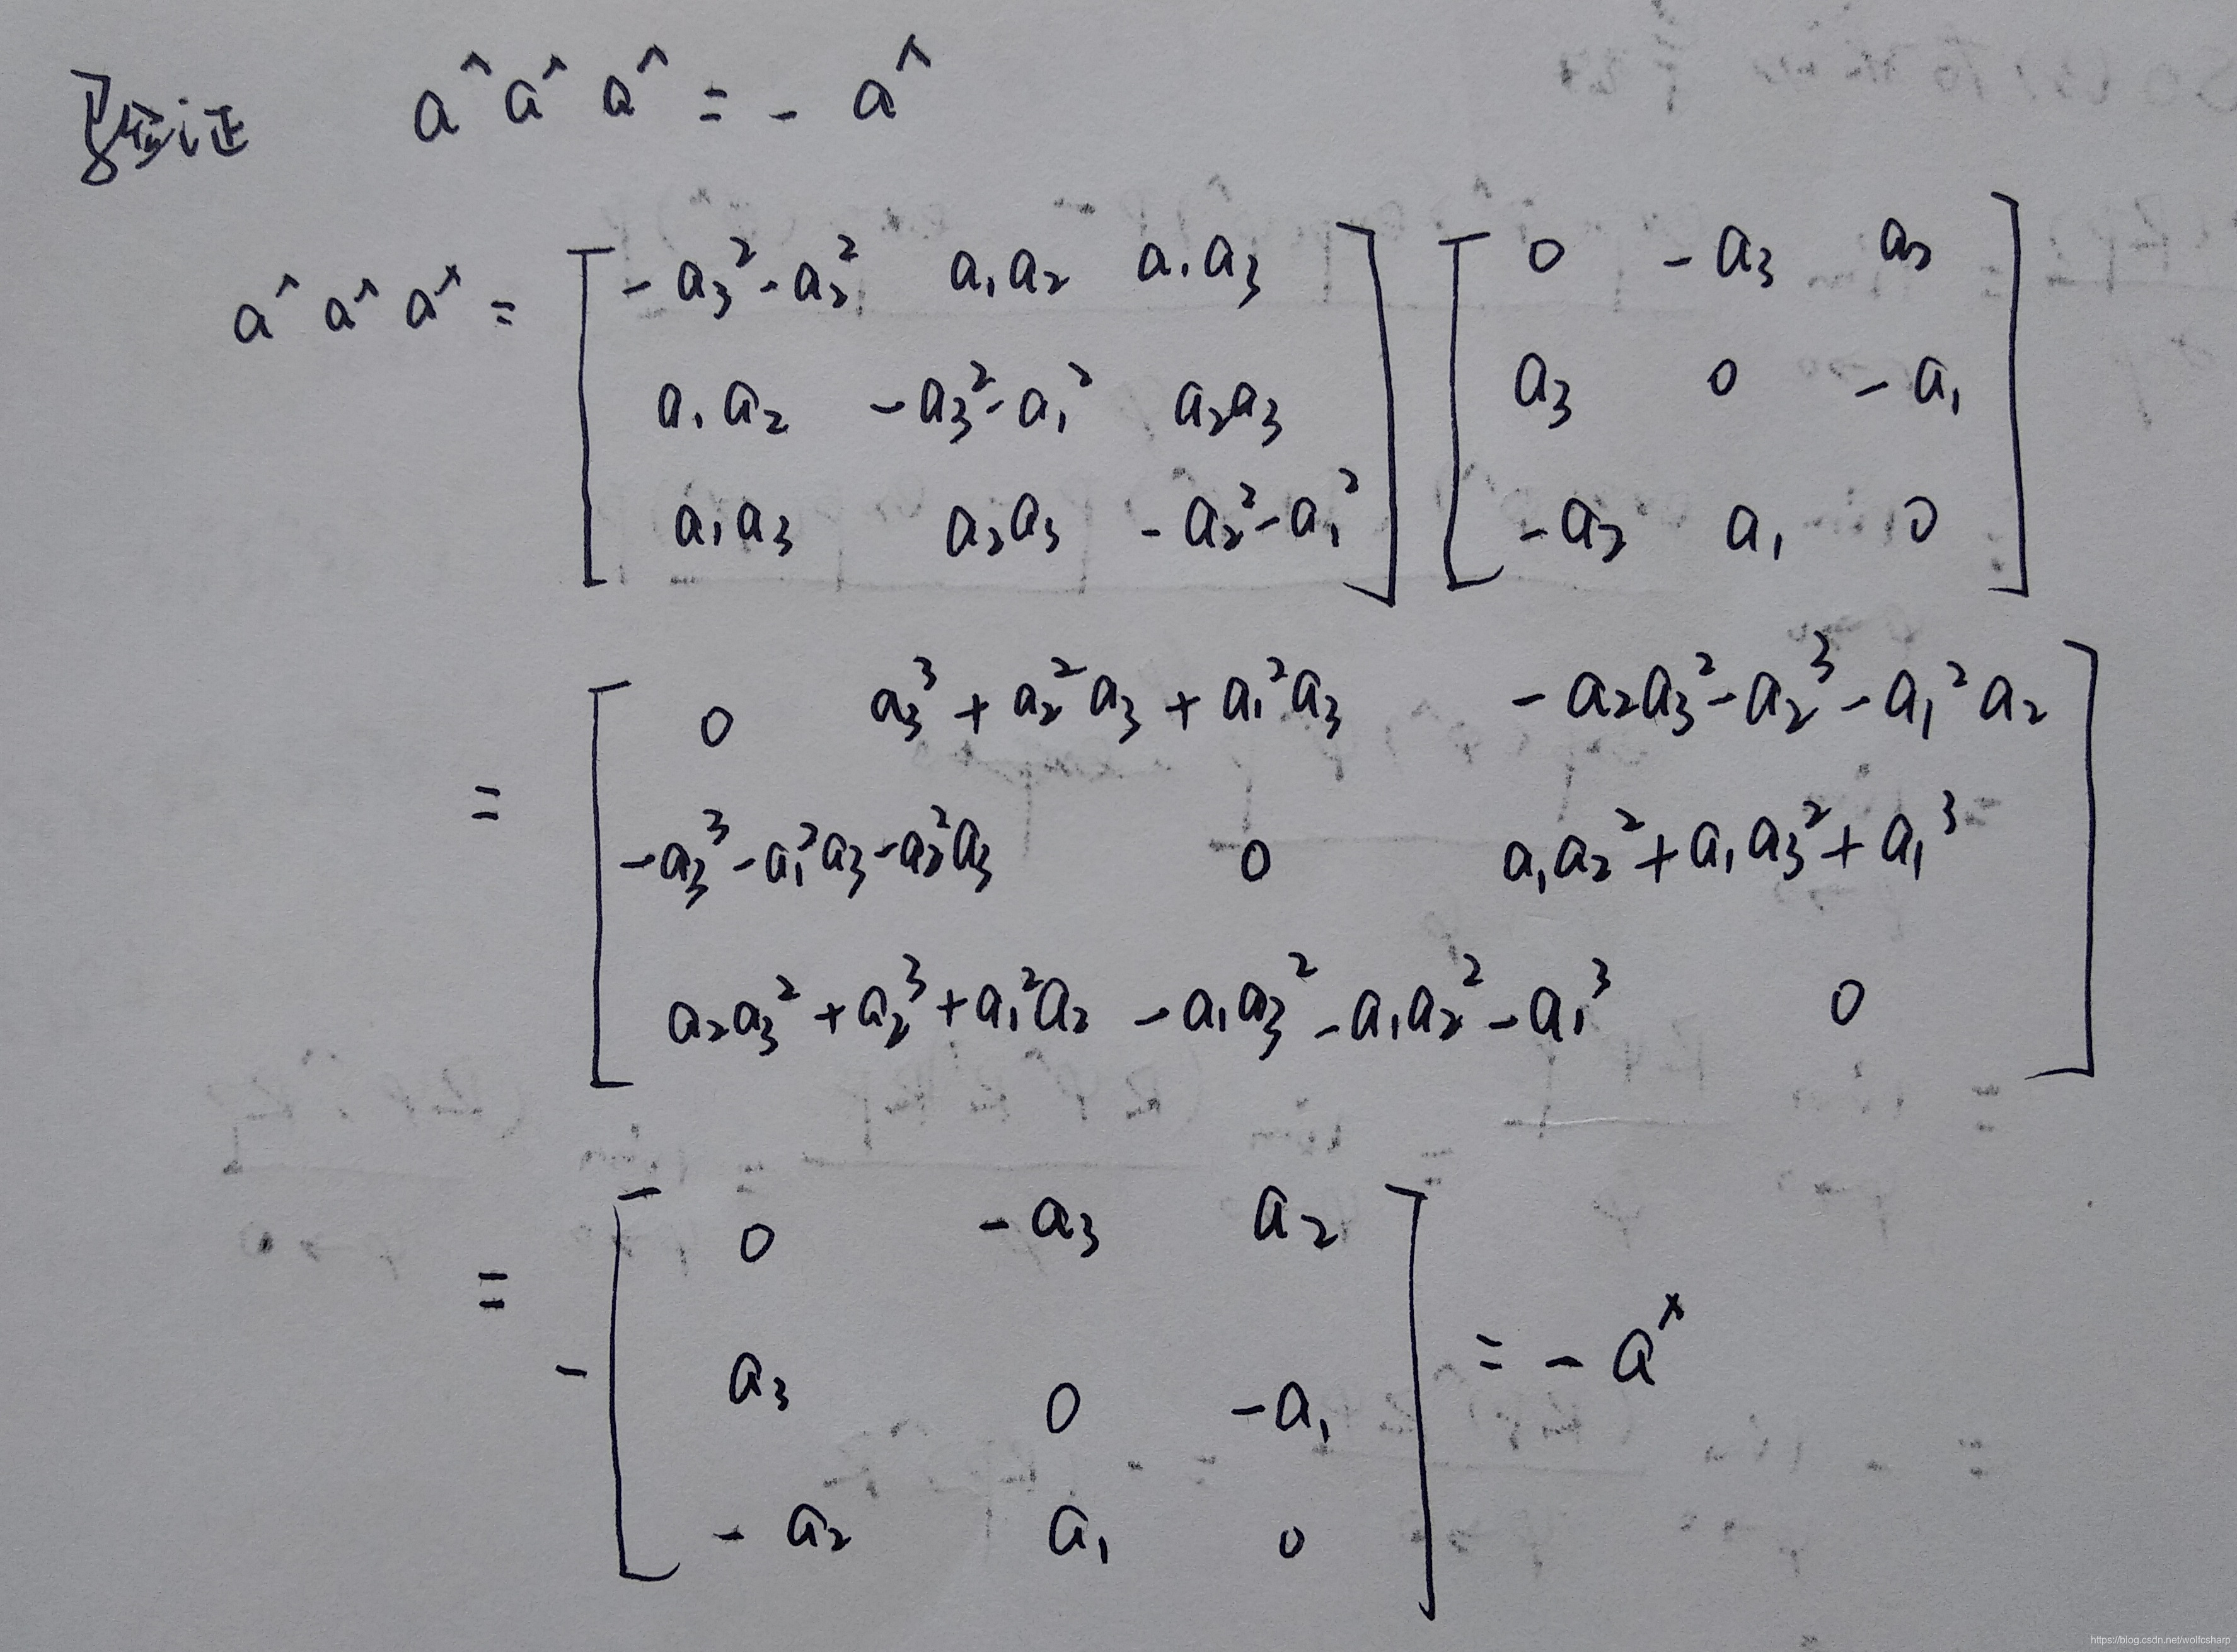 验证 a^ a^ a^ = - a^
a^ a^ a^ = [ -a₃²-a₂² a₁a₂ a₁a₃ ] [ 0 -a₃ a₂ ]
a₁a₂ -a₃²-a₁² a₂a₃ a₃ 0 -a₁
a₁a₃ a₂a₃ -a₂²-a₁² -a₂ a₁ 0
= [ 0 a₃³+a₂²a₃+a₁²a₃ -a₂a₃²-a₂³-a₁²a₂ ]
-a₃³-a₁²a₃-a₂²a₃ 0 a₁a₂²+a₁a₃²+a₁³
a₂a₃²+a₂³+a₁²a₂ -a₁a₃²-a₁a₂²-a₁³ 0
= - [ 0 -a₃ a₂ ]
a₃ 0 -a₁ = - a^
-a₂ a₁ 0
https://blog.csdn.net/wolfcsharp